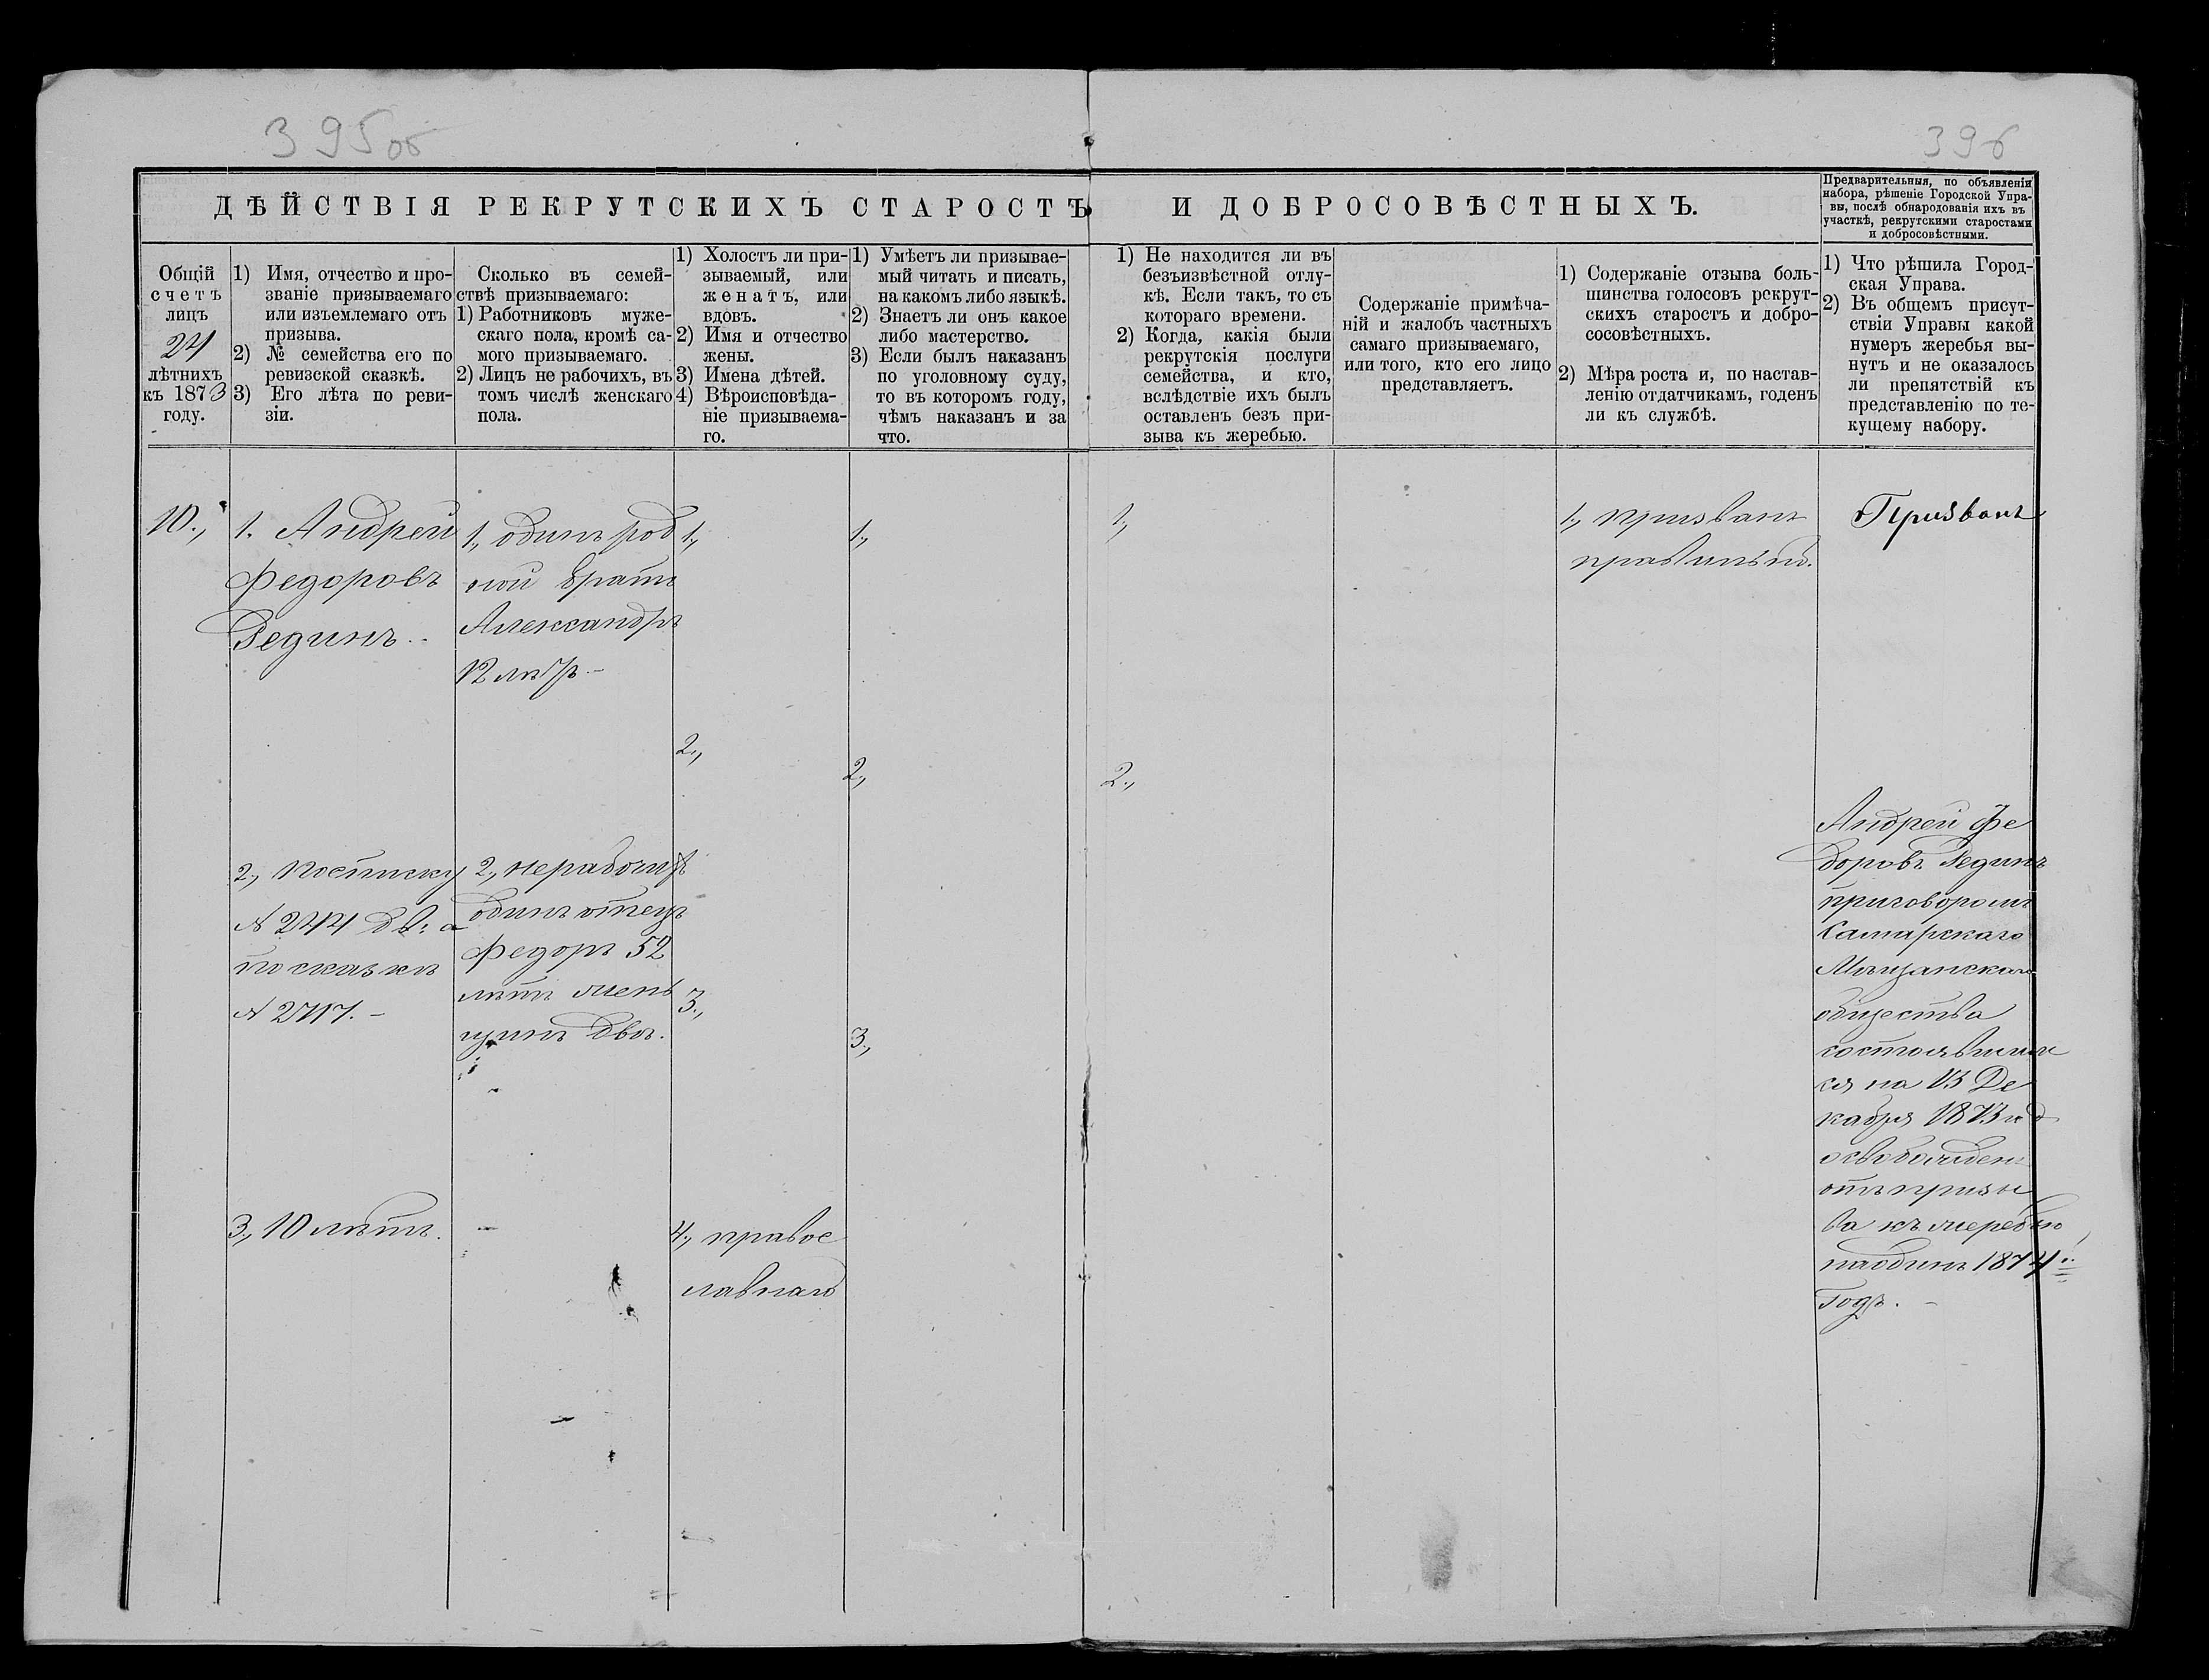 395об
396
ДѢЙСТВІЯ РЕКРУТСКИХЪ СТАРОСТЪ И ДОБРОСОВѢСТНЫХЪ.
Предварительныя, по объявленіи
набора, рѣшеніе Городской Упра-
вы, послѣ обнародованія ихъ въ
участкѣ, рекрутскими старостами
и добросовѣстными.
Общій
счетъ
лицъ
24
лѣтнихъ
къ 1873
году.
1) Имя, отчество и про-
званіе призываемаго
или изъемлемаго отъ
призыва.
2) № семейства его по
ревизской сказкѣ.
3) Его лѣта по реви-
зіи.
Сколько въ семей-
ствѣ призываемаго:
1) Работниковъ муже-
скаго пола, кромѣ са-
мого призываемаго.
2) Лицъ не рабочихъ, въ
томъ числѣ женскаго
пола.
1) Холостъ ли при-
зываемый, или
женатъ, или
вдовъ.
2) Имя и отчество
жены.
3) Имена дѣтей.
4) Вѣроисповѣда-
ніе призываема-
го.
1) Умѣетъ ли призывае-
мый читать и писать,
на какомъ либо языкѣ.
2) Знаетъ ли онъ какое
либо мастерство.
3) Если былъ наказанъ
по уголовному суду,
то въ которомъ году,
чѣмъ наказанъ и за
что.
1) Не находится ли въ
безъизвѣстной отлу-
кѣ. Если такъ, то съ
котораго времени.
2) Когда, какія были
рекрутскія послуги
семейства, и кто,
вслѣдствіе ихъ былъ
оставленъ безъ при-
зыва къ жеребью.
Содержаніе примѣча-
ній и жалобъ частныхъ
самаго призываемаго,
или того, кто его лицо
представляетъ.
1) Содержаніе отзыва боль-
шинства голосовъ рекрут-
скихъ старостъ и добро-
сосовѣстныхъ.
2) Мѣра роста и, по настав-
ленію отдатчикамъ, годенъ
ли къ службѣ.
1) Что рѣшила Город-
ская Управа.
2) Въ общемъ присут-
ствіи Управы какой
нумеръ жеребья вы-
нутъ и не оказалось
ли препятствій къ
представленію по те-
кущему набору.
10.,
1. Андрей
Федоровъ
Рединъ. -
2., Посписку
№ 244 дв: а
по сказкѣ
№ 2717. -
3., 10 лѣтъ.
1., одинъ род
ной братъ
Александръ
12 лѣтъ. -
2., нерабочихъ
одинъ отецъ
Федоръ 52
лѣтъ жен
щинъ двѣ.
1.,
2.,
3.,
4., правос
лавнаго
1.,
2.,
3.,
1.,
2.,
1., призванъ
правильно.
Призванъ
Андрей Фе
доровъ Рединъ
приговоромъ
Самарскаго
Мѣщанскаго
общества
состоявшим
ся на 13 Де
кабря 1873 год
освобожденъ
отъ призы
ва къ жеребью
наодинъ 1874й
годъ. -